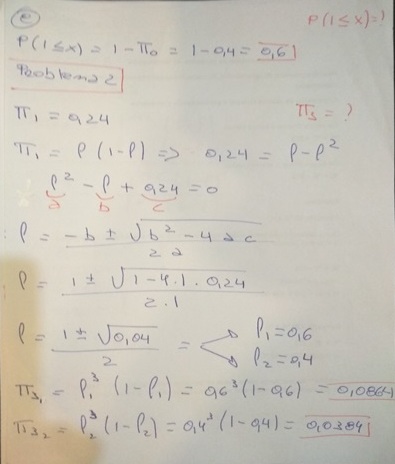 e P(1≤x)=?
P(1≤x) = 1-π₀ = 1-0,4 = 0,6
Problema 2
π₁ = 0,24 π₃ = ?
π₁ = ρ (1-ρ) => 0,24 = ρ-ρ²
ρ² - ρ + 0,24 = 0
a b c
ρ = -b ± √b² - 4ac / 2a
ρ = 1 ± √1-4.1.0,24 / 2.1
ρ = 1 ± √0,04 / 2 = ρ₁=0,6
ρ₂=0,4
π₃₁ = ρ₁³ (1-ρ₁) = 0,6³(1-0,6) = 0,0864
π₃₂ = ρ₂³ (1-ρ₂) = 0,4³ (1-0,4) = 0,0384